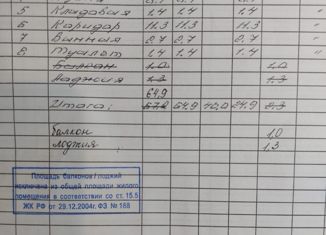 5 Кладовая 1.4 1.4 1.4 "
6 Коридор 11.3 11.3 11.3 "
7 Ванная 2.7 2.7 2.7 "
8 Туалет 1.4 1.4 1.4 "
Балкон 1.0 1.0
Лоджия 1.3 1.3
64,9
Итого: 64,9 40,0 24,9 2.3
балкон 1,0
лоджия 1,3
Площадь балконов / лоджий
исключена из общей площади жилого
помещения в соответствии со ст. 15.5
ЖК РФ от 29.12.2004г. ФЗ № 188